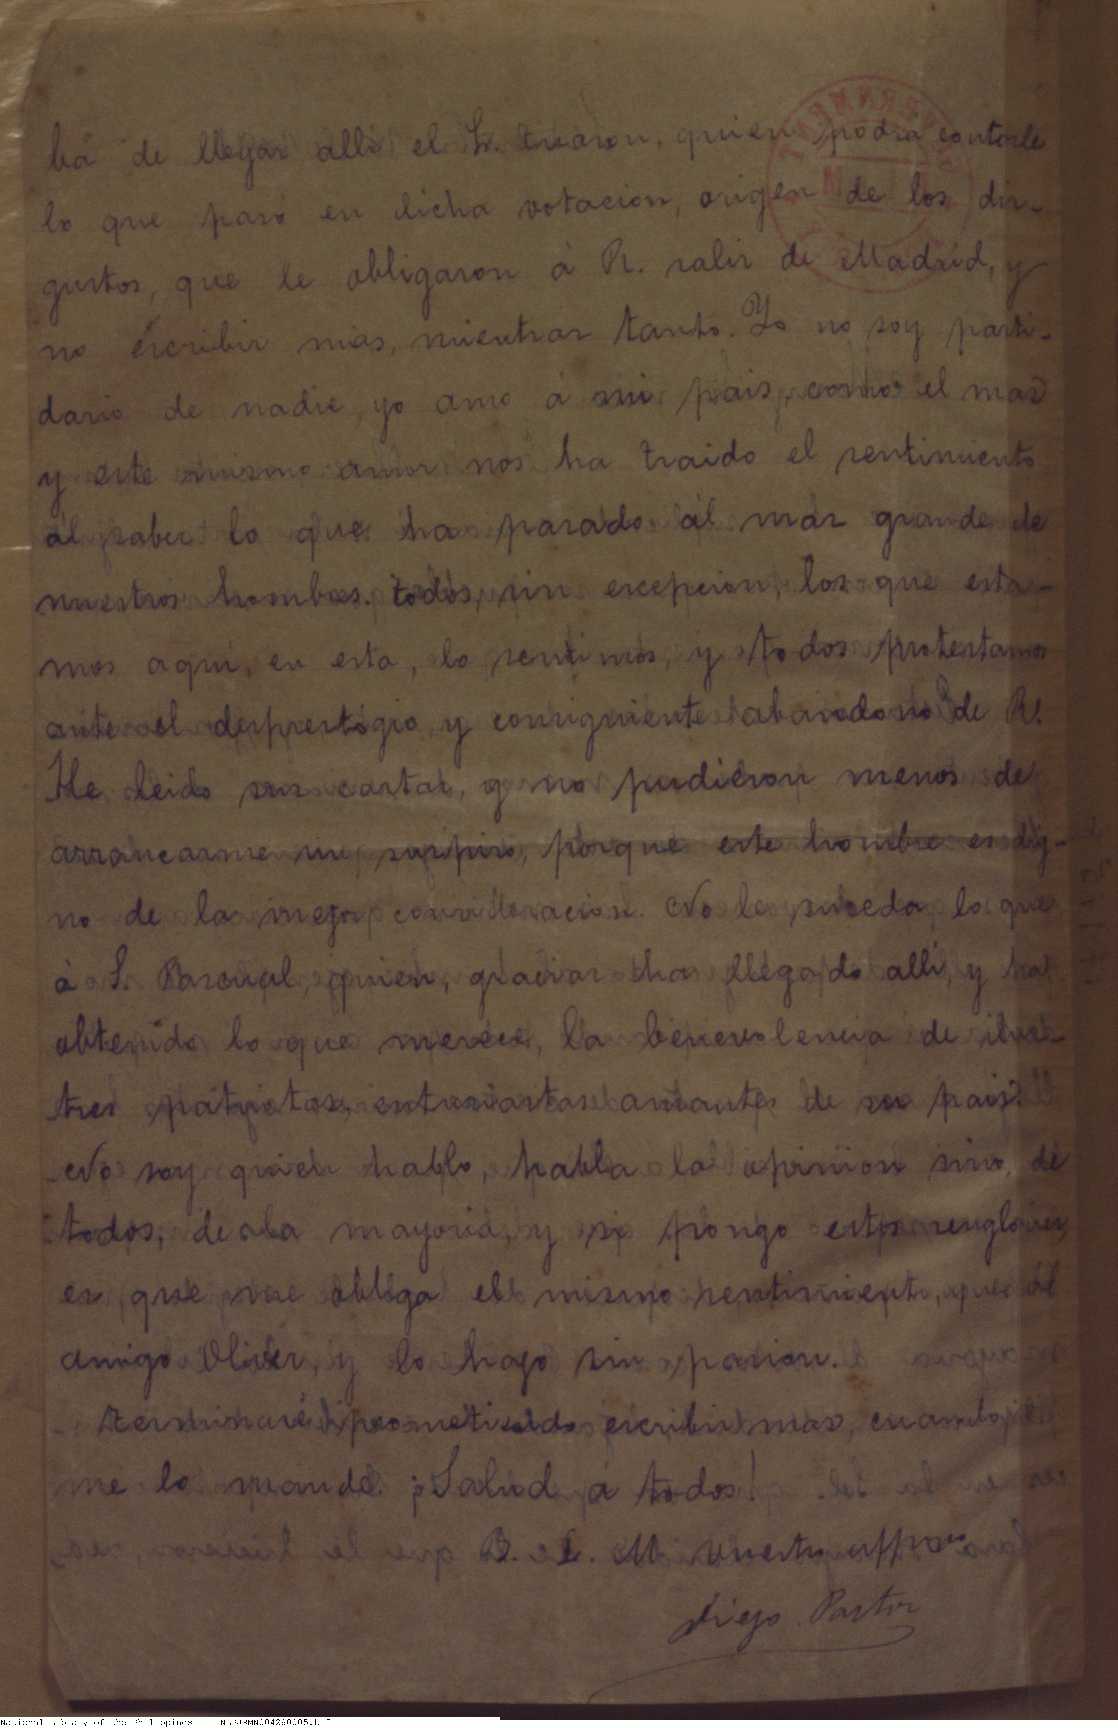 ba de llegar alli el Sr. quien podrá contarle
lo que pasó en dicha votacion, origen de los dis-
gustos, que le obligaron á R. salir de Madrid, y
no escribir mas, mientras tanto. Yo no soy parti-
dario de nadie, yo amo á mi pais, como el mas
y este mismo amor nos ha traido el sentimiento
al saber lo que ha pasado al más grande de
nuestros hombres. todos, sin escepcion, los que esta-
mos aqui, en esta, lo sentimos, y todos protestamos
ante el desprestigio, y consiguiente abandono de R.
He leido sus cartas, y no pudieron menos de
arrancarme un suspiro, porque este hombre es dig-
no de la mejor consideracion. No le suceda lo que
á S. Pascual, quien, gracias ha llegado alli, y ha
obtenido lo que merece, la benevolencia de ilus-
tres patriotas, entusiastas amantes de su pais.
No soy quien hablo, habla la opinion sino, de
todos, de la mayoria, y si pongo estos renglones,
es que me obliga el mismo sentimiento, que al
amigo Oliver, y lo hago sin pasion.
Terminaré prometiendo escribir mas, cuando
me lo mande. ¡Salud á todos!
B. L. M. vuestro affmo
Diego Pastor
National Library of the Philippines